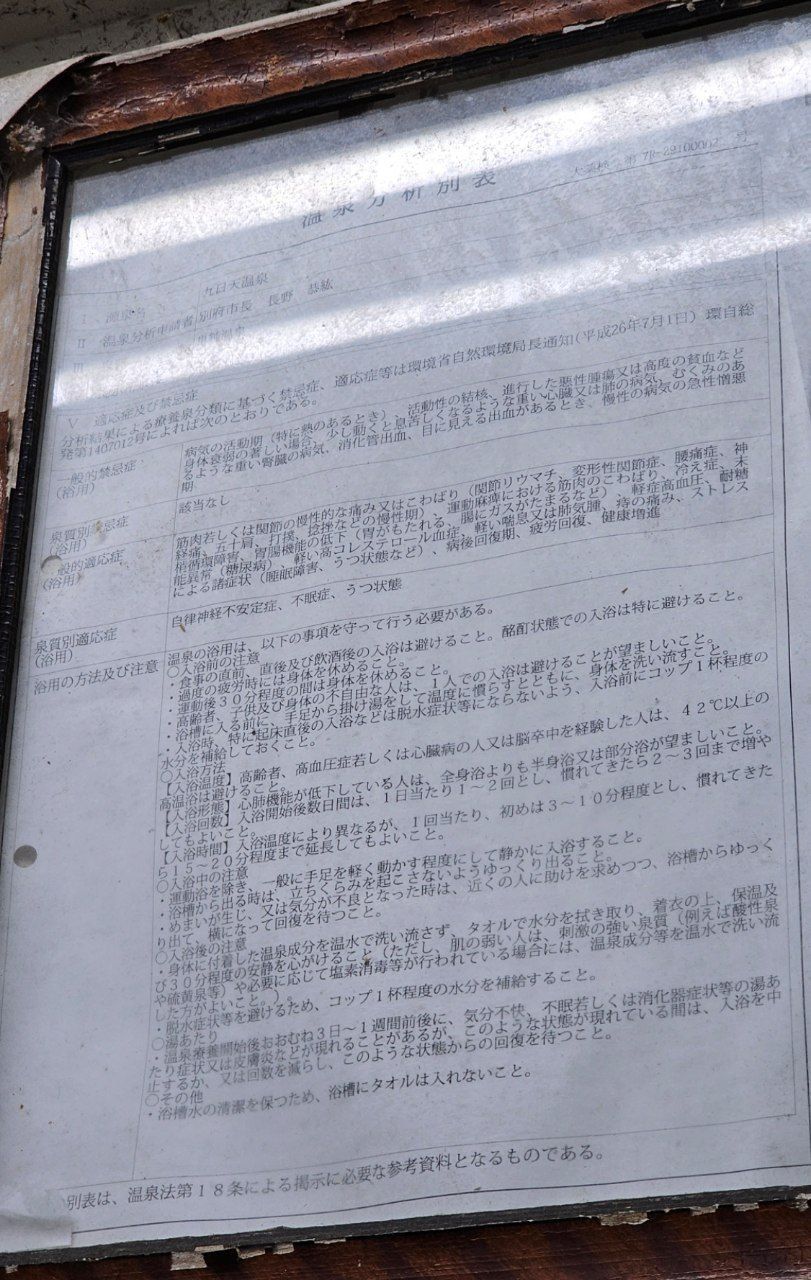 温泉分析別表
第 7R-29100002 号
Ⅰ 源泉名 九日天温泉
Ⅱ 温泉分析申請者 別府市長 長野 恭紘
Ⅲ
Ⅴ 適応症及び禁忌症
分析結果による療養泉分類に基づく禁忌症、適応症等は環境省自然環境局長通知(平成26年7月1日) 環自総
発第1407012号によれば次のとおりである。
一般的禁忌症
(浴用)
病気の活動期(特に熱のあるとき)、活動性の結核、進行した悪性腫瘍又は高度の貧血など
身体衰弱の著しい場合、少し動くと息苦しくなるような重い心臓又は肺の病気、むくみのあ
るような重い腎臓の病気、消化管出血、目に見える出血があるとき、慢性の病気の急性増悪
期
泉質別禁忌症
(浴用)
該当なし
一般的適応症
(浴用)
筋肉若しくは関節の慢性的な痛み又はこわばり(関節リウマチ、変形性関節症、腰痛症、神
経痛、五十肩、打撲、捻挫などの慢性期)、運動麻痺における筋肉のこわばり、冷え症、末
梢循環障害、胃腸機能の低下(胃がもたれる、腸にガスがたまるなど)、軽症高血圧、耐糖
能異常(糖尿病)、軽い高コレステロール血症、軽い喘息又は肺気腫、痔の痛み、ストレス
による諸症状(睡眠障害、うつ状態など)、病後回復期、疲労回復、健康増進
泉質別適応症
(浴用)
自律神経不安定症、不眠症、うつ状態
浴用の方法及び注意
温泉の浴用は、以下の事項を守って行う必要がある。
○入浴前の注意
・食事の直前、直後及び飲酒後の入浴は避けること。酩酊状態での入浴は特に避けること。
・過度の疲労時には身体を休めること。
・運動後30分程度の間は身体を休めること。
・高齢者、子供及び身体の不自由な人は、1人での入浴は避けることが望ましいこと。
・浴槽に入る前に、手足から掛け湯をして温度に慣らすとともに、身体を洗い流すこと。
・入浴時、特に起床直後の入浴などは脱水症状等にならないよう、入浴前にコップ1杯程度の
水分を補給しておくこと。
○入浴方法
【入浴温度】高齢者、高血圧症若しくは心臓病の人又は脳卒中を経験した人は、42℃以上の
高温浴は避けること。
【入浴形態】心肺機能が低下している人は、全身浴よりも半身浴又は部分浴が望ましいこと。
【入浴回数】入浴開始後数日間は、1日当たり1~2回とし、慣れてきたら2~3回まで増や
してもよいこと。
【入浴時間】入浴温度により異なるが、1回当たり、初めは3~10分程度とし、慣れてきた
ら15~20分程度まで延長してもよいこと。
○入浴中の注意
・運動浴を除き、一般に手足を軽く動かす程度にして静かに入浴すること。
・浴槽から出る時は、立ちくらみを起こさないようゆっくり出ること。
・めまいが生じ、又は気分が不良となった時は、近くの人に助けを求めつつ、浴槽からゆっく
り出て、横になって回復を待つこと。
○入浴後の注意
・身体に付着した温泉成分を温水で洗い流さず、タオルで水分を拭き取り、着衣の上、保温及
び30分程度の安静を心がけること(ただし、肌の弱い人は、刺激の強い泉質(例えば酸性泉
や硫黄泉等)や必要に応じて塩素消毒等が行われている場合には、温泉成分等を温水で洗い流
した方がよいこと。)。
・脱水症状等を避けるため、コップ1杯程度の水分を補給すること。
○湯あたり
・温泉療養開始後おおむね3日~1週間前後に、気分不快、不眠若しくは消化器症状等の湯あ
たり症状又は皮膚炎などが現れることがあるが、このような状態が現れている間は、入浴を中
止するか、又は回数を減らし、このような状態からの回復を待つこと。
○その他
・浴槽水の清潔を保つため、浴槽にタオルは入れないこと。
別表は、温泉法第18条による掲示に必要な参考資料となるものである。